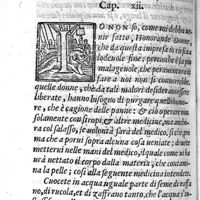 Cap. xii.
IO NON so, come mi debba ue
nir fatto, Honorande Donne
che da questa impresa io riesca
lodeuole fine: percioche è pur
malageuole che permanenti
fare a noi non si conuenga
quelle donne, che da tali malori desiderano esser
liberate, hanno bisogno di purgare quell humo-
re, che è cagione delle panne: & ciò operare non
solamente con siropi & altre medicine, ma anco-
ra col salasso, se uolontà sarà del medico, si che pri
che a porui sopra alcuna cosa ueniate; dunque
metterui nelle mani del medico, ilquale come ui ha
urà nettato il corpo dalla materia, che contami-
na la pelle; così alla seguente medicina intendete.
Cuocete in acqua iguale parte di seme di raffa-
no, di rucola, et di zaffarano tanto, che l'acqua s'in